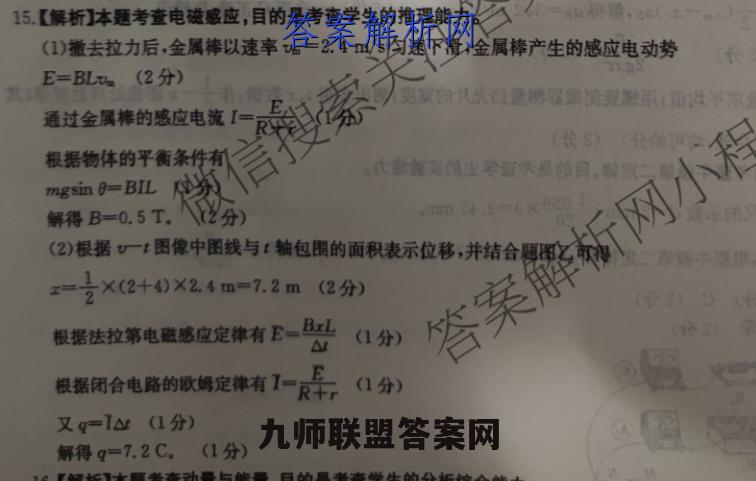 15.【解析】本题考查电磁感应,目的是考查学生的推理能力。
答案解析网
(1)撤去拉力后,金属棒以速率 vₘ=2.4 m/s 匀速下滑,金属棒产生的感应电动势
E=BLvₘ (2分)
通过金属棒的感应电流 I=E/(R+r) (1分)
根据物体的平衡条件有
mgsin θ=BIL (2分)
解得 B=0.5 T。 (2分)
(2)根据 v-t 图像中图线与 t 轴包围的面积表示位移,并结合题图乙可得
x=1/2×(2+4)×2.4 m=7.2 m (2分)
根据法拉第电磁感应定律有 E̅=BxL/Δt (1分)
根据闭合电路的欧姆定律有 I̅=E̅/(R+r) (1分)
又 q=I̅Δt (1分)
解得 q=7.2 C。 (1分)
九师联盟答案网
16.【解析】本题考查动量与能量,目的是考查学生的分析综合能力
微信搜索关注答
答案解析网小程